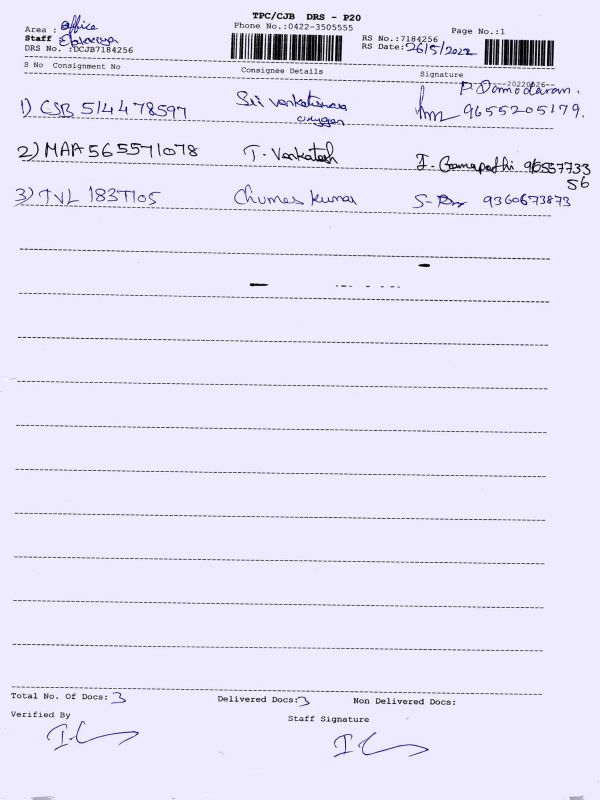 TPC/CJB DRS - P20
Phone No.:0422-3505555
Area : office
Staff
DRS No. :DCJB7184256
RS No.:7184256
RS Date:26/5/2022
Page No.:1
S No Consignment No Consignee Details Signature
P. Damodaran.
1) CSB 514478597 Sri Venkateswara oxygen 9655205179.
2) MAA 565571078 T. Venkatesh I. Ganapathi 9655773356
3) TVL 1837105 Kumar 9360673873
Total No. Of Docs: 3 Delivered Docs: 3 Non Delivered Docs:
Verified By Staff Signature